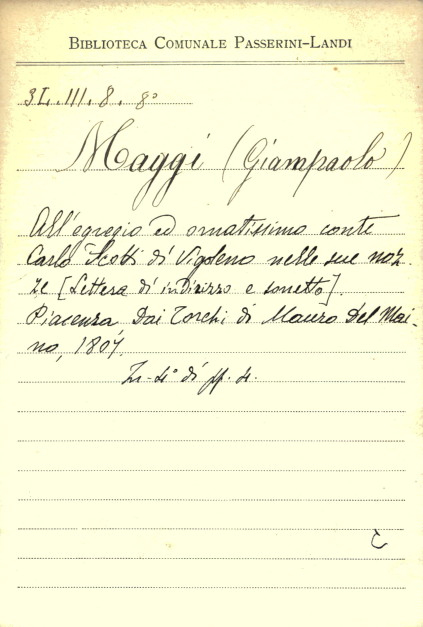 BIBLIOTECA COMUNALE PASSERINI-LANDI
3L.III.8. 8°
Maggi (Giampaolo)
All'egregio ed ornatissimo conte
Carlo Scotti di Vigoleno nelle sue noz-
ze [Lettera di indirizzo e sonetto].
Piacenza, Dai Torchi di Mauro Del Mai-
no, 1807.
In-4° di pp. 4.